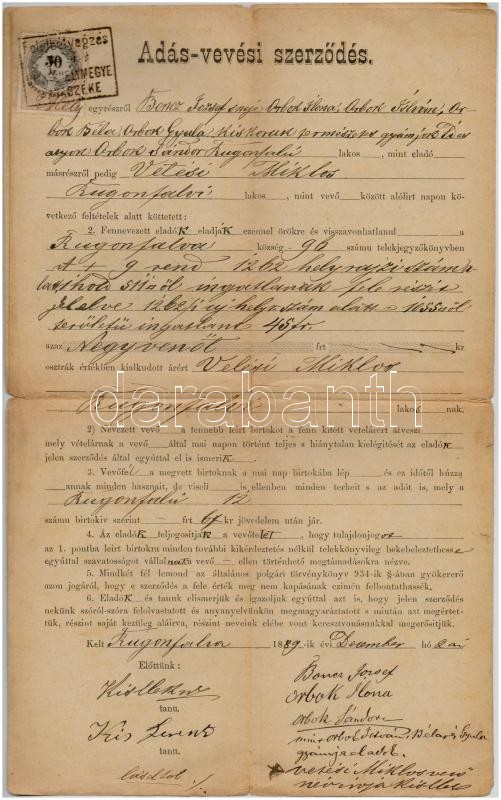 50
MEGYE
SZÉKE
Adás-vevési szerződés.
egyrészről Boncz József s neje Orbok Ilona, Orbok István, Or-
bok Béla Orbok Gyula kiskoruak természetes gyámjok
Orbok Sándor Rugonfalvi lakos, mint eladó
másrészről pedig Vetési Miklos
Rugonfalvi lakos, mint vevő között alólirt napon kö-
vetkező feltételek alatt köttetett:
2. Fennevezett eladók eladják ezennel örökre és visszavonhatlanul a
Rugonfalva község 96 számu telekjegyzőkönyvben
A + 9 rend 1262 helyrajzi szám a-
latti hold 511 □ öl ingatlanuk fele részit
jelelve 1262/1 uj helyr. szám alatt = 1055 □ öl
területű ingatlant 45 fr.
azaz Negyvenöt frt kr
osztrák értékben kialkudott árért Vetési Miklos
Rugonfalvi lakos nak.
2) Nevezett vevő a fennebb leirt birtokot a fenn kitett vételárért átveszi
mely vételárnak a vevő által mai napon történt teljes s hiánytalan kielégitését az eladók
jelen szerződés által egyuttal el is ismerik.
3. Vevőfél a megvett birtoknak a mai nap birtokába lép és ez időtől húzza
annak minden hasznait, de viseli is ellenben minden terheit s az adót is, mely a
Rugonfalvi 12
számu birtokiv szerint – frt 67 kr jövedelem után jár.
4. Az eladók feljogositják a vevőfelet, hogy tulajdonjogot
az 1. pontba leirt birtokra minden további kikérleztetés nélkül telekkönyvileg bekebeleztethesse
egyuttal szavatosságot vállalnak a vevő – ellen történhető megtámadásokra nézve.
5. Mindkét fél lemond az általános polgári törvénykönyv 934-ik §-ában gyökerező
azon jogáról, hogy e szerződés a fele érték meg nem kapásának ezimén felbonthattassék.
6. Eladók és tanuk elismerjük és igazoljuk egyuttal azt is, hogy jelen szerződés
nekünk szóról-szóra felolvastatott és anyanyelvünkön megmagyaráztatott s miután azt megértet-
tük, részint saját kezüleg aláirva, részint neveink elébe vont keresztvonásunkkal megerősitjük.
Kelt Rugonfalva 1889-ik évi December hó 2 án
Előttünk:
tanu.
Kis Ferenc
tanu.
Boncz József
Orbok Ilona
Orbok Sándor
mint Orbok István, Béla és Gyula
gyámja eladok.
Vetési Miklos vevő
névirója
darabanth